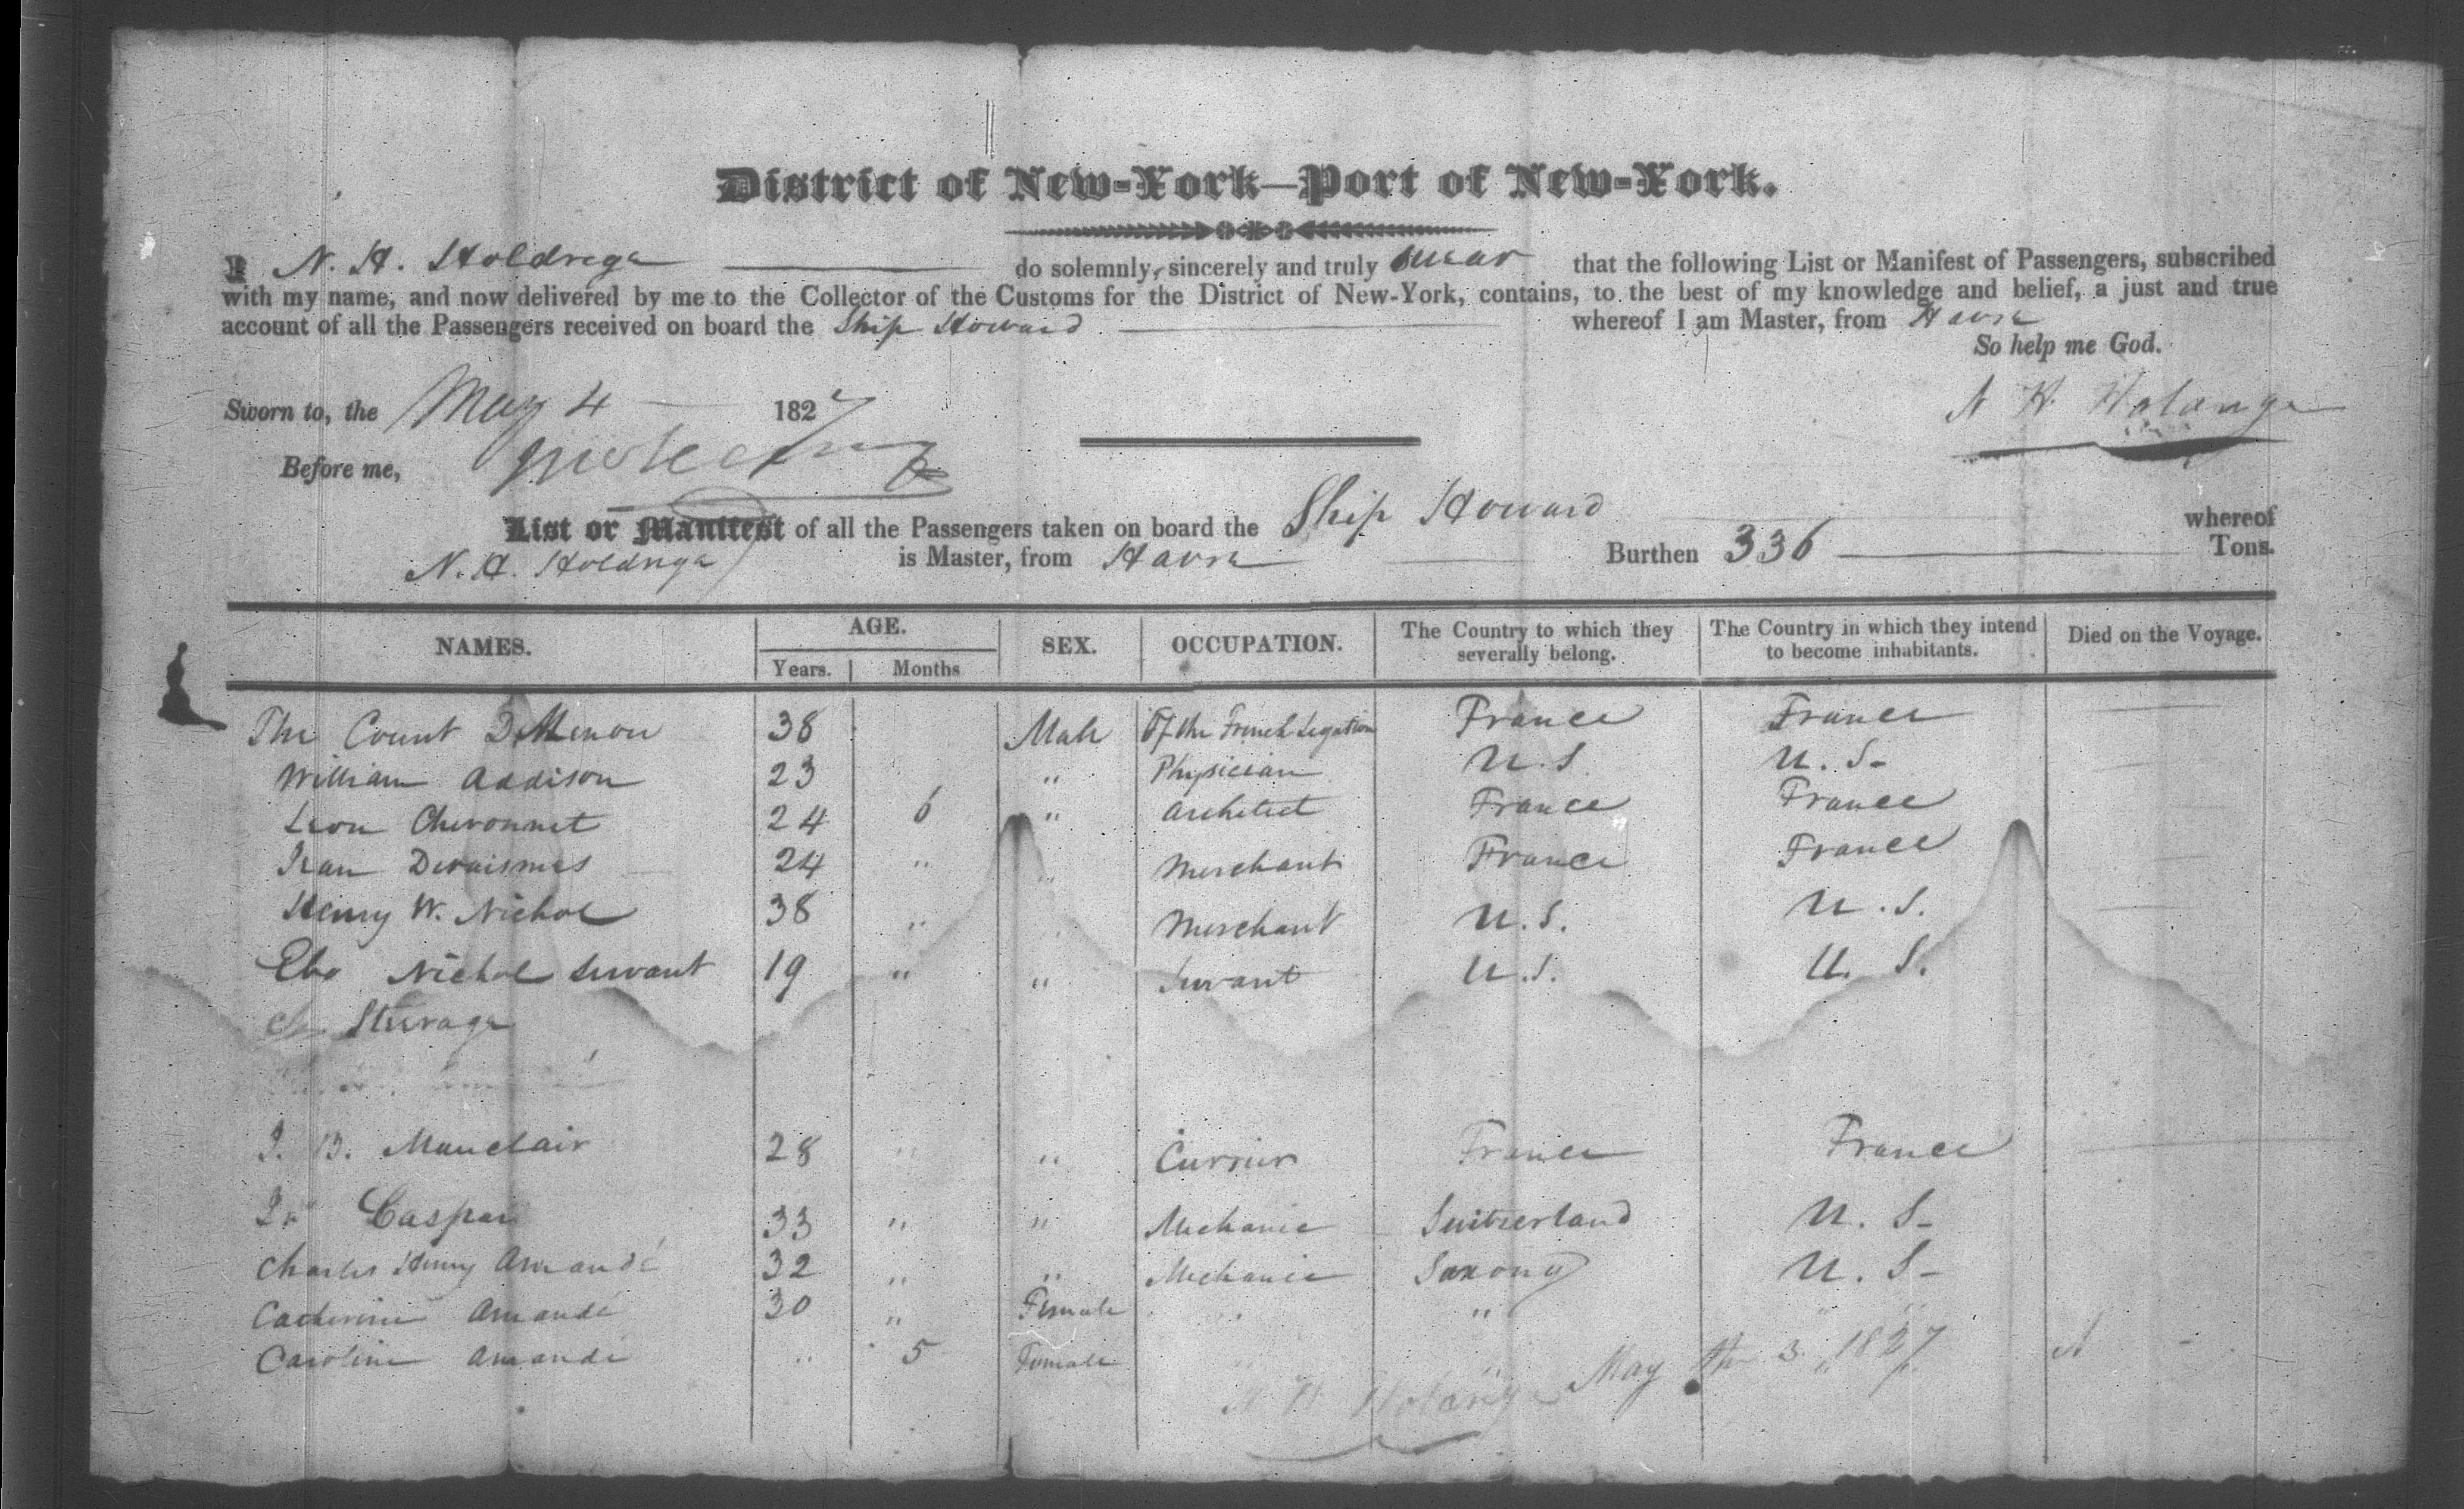 District of New-York—Port of New-York.
I N. H. Holdrege do solemnly, sincerely and truly swear that the following List or Manifest of Passengers, subscribed
with my name, and now delivered by me to the Collector of the Customs for the District of New-York, contains, to the best of my knowledge and belief, a just and true
account of all the Passengers received on board the Ship Howard whereof I am Master, from Havre
So help me God.
Sworn to, the May 4 1827
N H Holdrege
Before me,
List or Manifest of all the Passengers taken on board the Ship Howard whereof
N. H. Holdrege is Master, from Havre Burthen 336 Tons.
NAMES. AGE. SEX. OCCUPATION. The Country to which they severally belong. The Country in which they intend to become inhabitants. Died on the Voyage.
Years. Months
The Count DeMenou 38 Male Of the French Legation France France
William Addison 23 " Physician U.S. U.S.
Leon Chevonnet 24 6 " Architect France France
Jean Devaismes 24 " " Merchant France France
Henry W. Nichol 38 " Merchant U.S. U.S.
Nichol Servant 19 " " Servant U.S. U. S.
Steerage
J. B. Mauclair 28 " " Currier France France
Caspar 33 " " Mechanic Switzerland U. S-
Charles Henry Amandé 32 " " Mechanic Saxony U. S-
Catherine Amandé 30 " Female "
Caroline Amandé " 5 Female "
N H Holdrege May the 3 1827